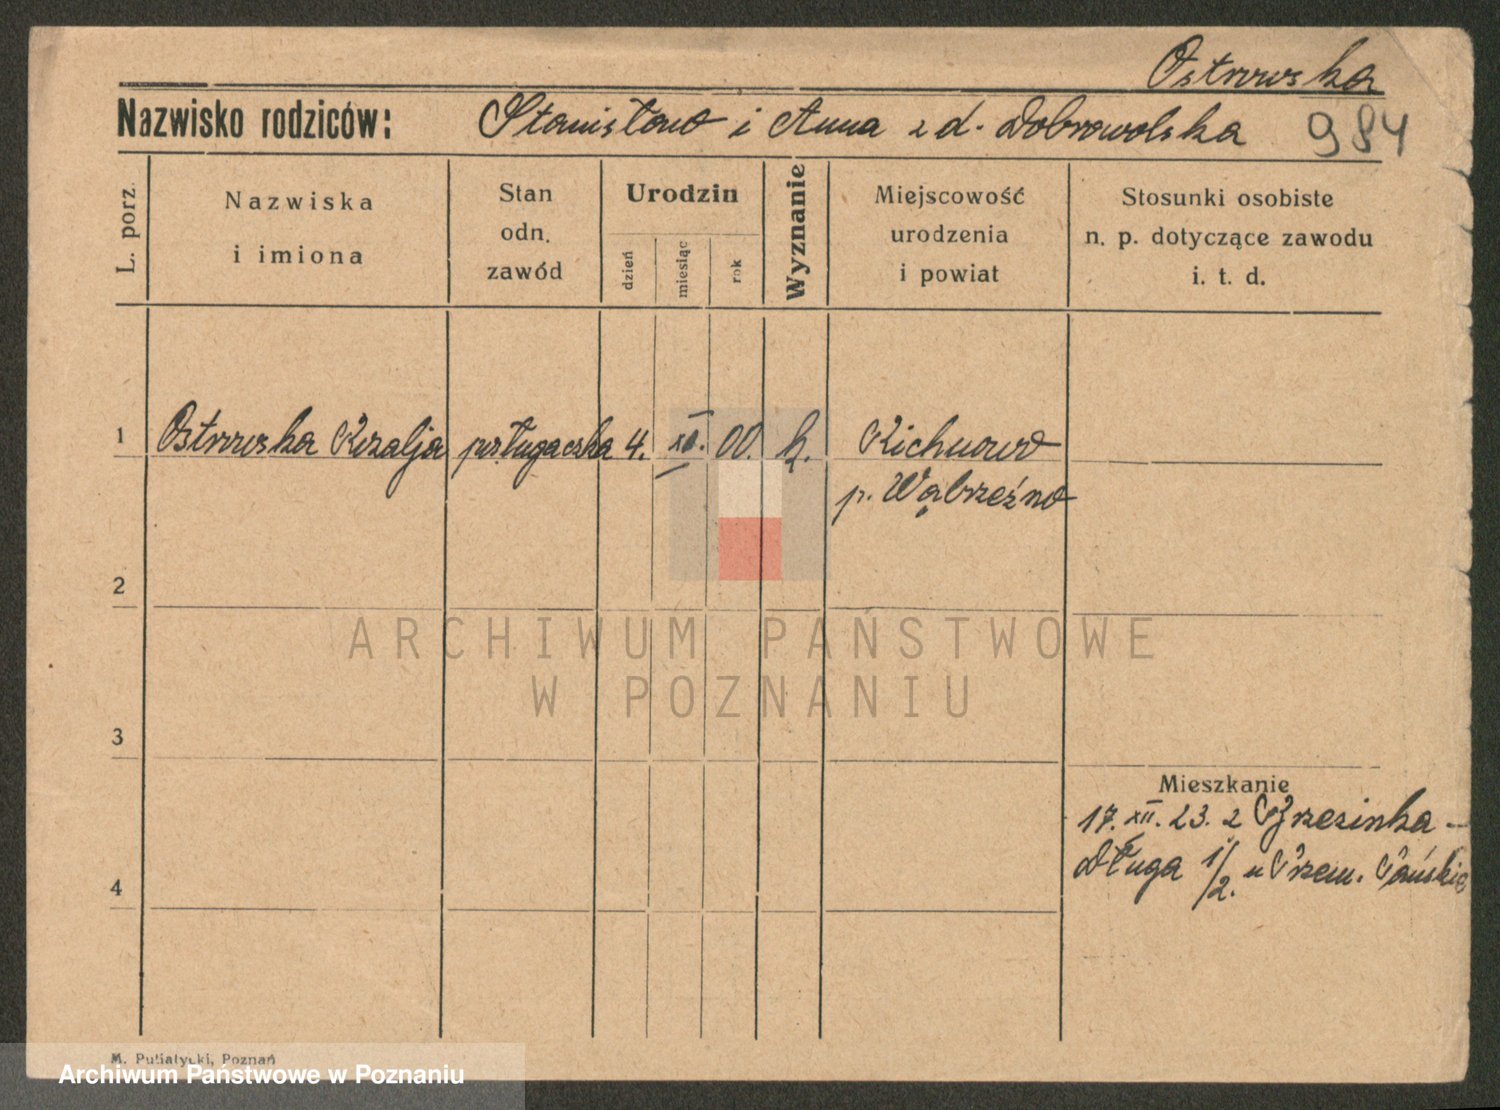 Ostrowska
Nazwisko rodziców: Stanisław i Anna z d. Dobrowolska 984
L. porz.
Nazwiska
i imiona
Stan
odn.
zawód
Urodzin
dzień
miesiąc
rok
Wyznanie
Miejscowość
urodzenia
i powiat
Stosunki osobiste
n. p. dotyczące zawodu
i. t. d.
1 Ostrowska Rozalja posługaczka 4. XII. 00. k.
p. Wąbrzeźno
2
ARCHIWUM PAŃSTWOWE
W POZNANIU
3
Mieszkanie
17. XII. 23. z Brzezinka -
Długa 1/2. u
4
M. Putiatycki, Poznań
Archiwum Państwowe w Poznaniu